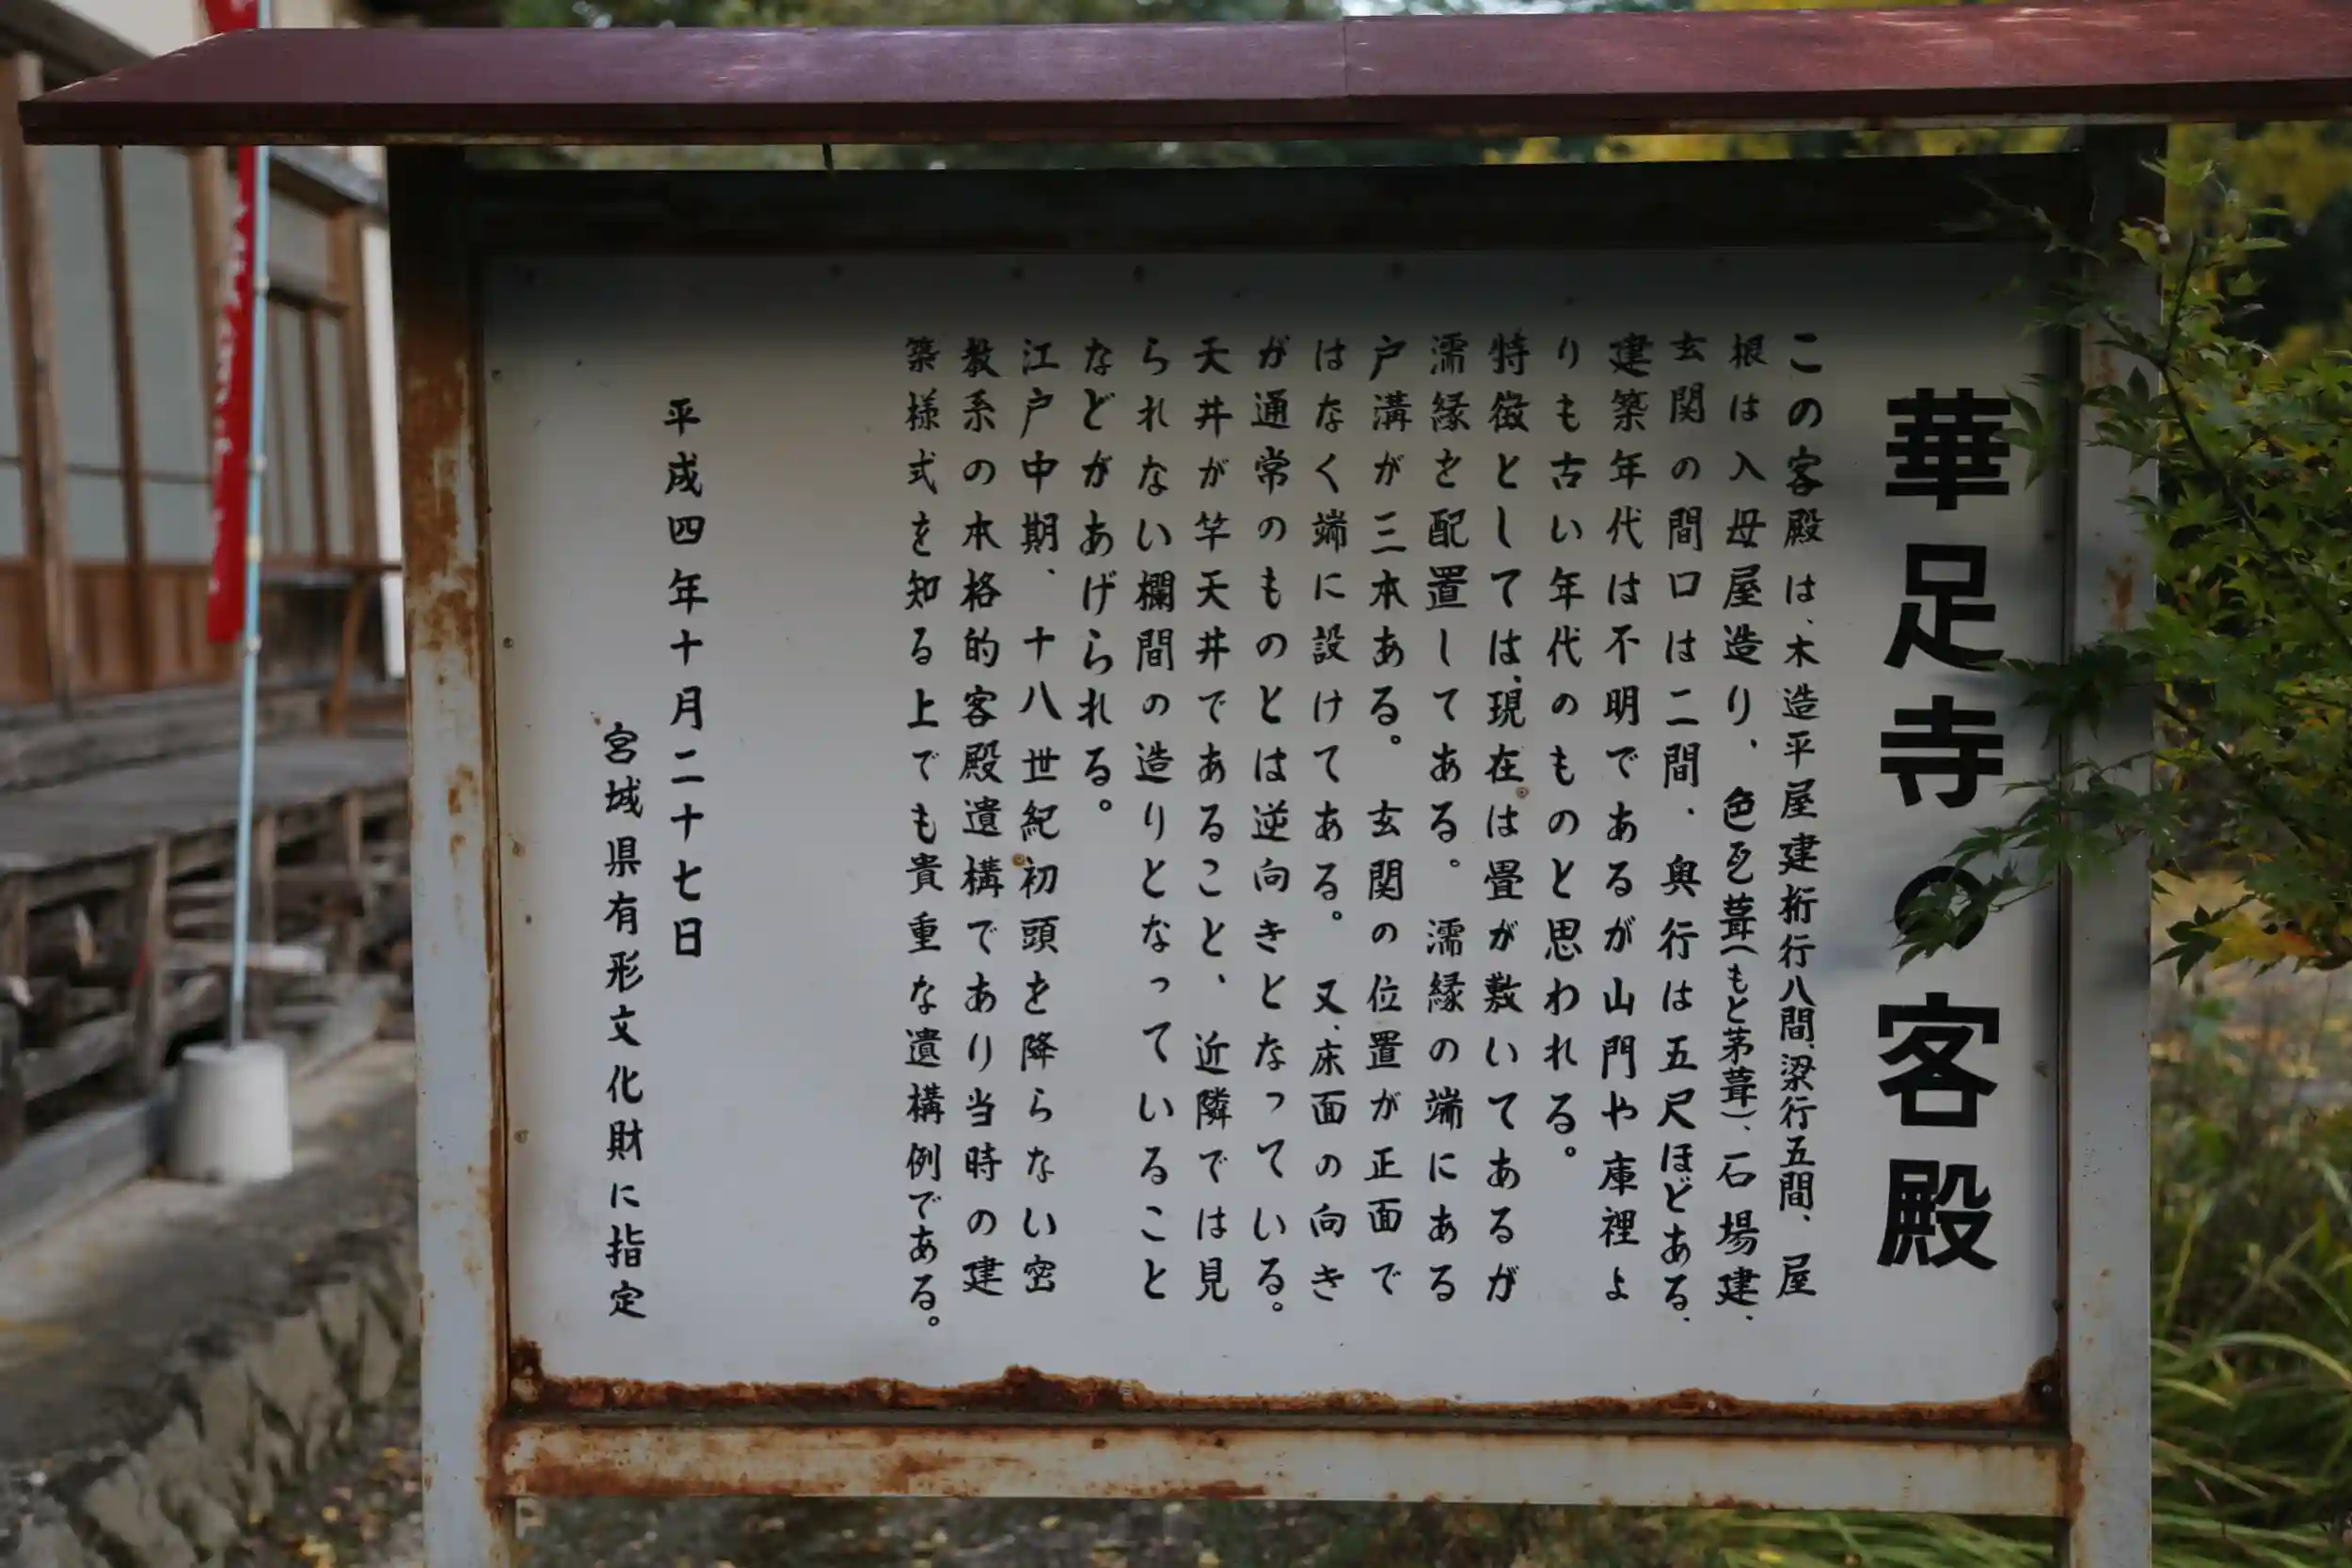 華足寺の客殿
この客殿は、木造平屋建桁行八間、梁行五間、屋
根は入母屋造り、色瓦葺(もと茅葺)、石場建、
玄関の間口は二間、奥行は五尺ほどある、
建築年代は不明であるが山門や庫裡よ
りも古い年代のものと思われる。
特徴としては、現在は畳が敷いてあるが
濡縁を配置してある。濡縁の端にある
戸溝が三本ある。玄関の位置が正面で
はなく端に設けてある。又、床面の向き
が通常のものとは逆向きとなっている。
天井が竿天井であること、近隣では見
られない欄間の造りとなっていること
などがあげられる。
江戸中期、十八世紀初頭を降らない密
教系の本格的客殿遺構であり当時の建
築様式を知る上でも貴重な遺構例である。
平成四年十月二十七日
宮城県有形文化財に指定